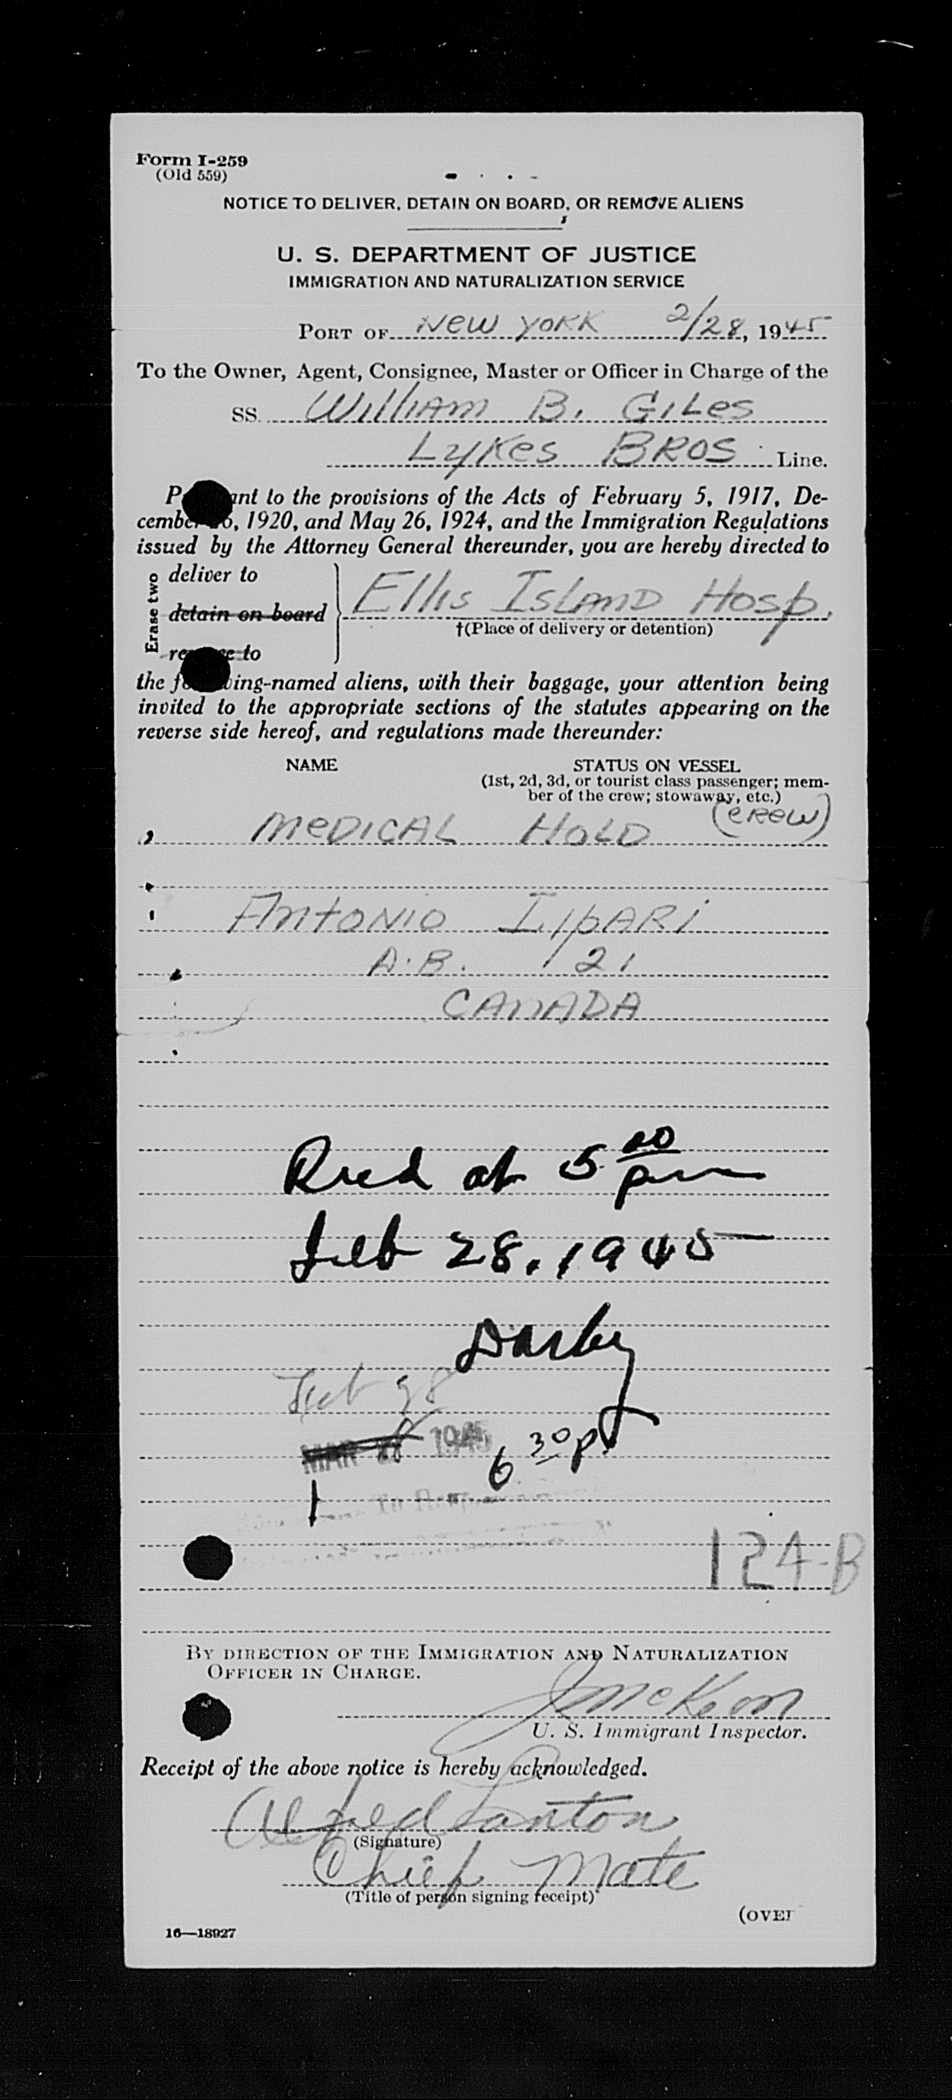 Form I-259
(Old 559)
NOTICE TO DELIVER, DETAIN ON BOARD, OR REMOVE ALIENS
U. S. DEPARTMENT OF JUSTICE
IMMIGRATION AND NATURALIZATION SERVICE
PORT OF New York 2/28, 1945
To the Owner, Agent, Consignee, Master or Officer in Charge of the
SS. William B. Giles
Lykes Bros Line.
P ant to the provisions of the Acts of February 5, 1917, De-
cember 26, 1920, and May 26, 1924, and the Immigration Regulations
issued by the Attorney General thereunder, you are hereby directed to
Erase two
deliver to
detain on board
re e to
Ellis Island Hosp.
†(Place of delivery or detention)
the fo wing-named aliens, with their baggage, your attention being
invited to the appropriate sections of the statutes appearing on the
reverse side hereof, and regulations made thereunder:
NAME STATUS ON VESSEL
(1st, 2d, 3d, or tourist class passenger; mem-
ber of the crew; stowaway, etc.)
Medical Hold (crew)
Antonio Lipari
A.B. 21
CANADA
Recd at 5 00 pm
Feb 28, 1945
Darby
Feb 28
MAR 28 1945
6 30 p
124-B
BY DIRECTION OF THE IMMIGRATION AND NATURALIZATION
OFFICER IN CHARGE.
J McKeon
U. S. Immigrant Inspector.
Receipt of the above notice is hereby acknowledged.
Alfred Lanton
(Signature)
Chief Mate
(Title of person signing receipt)
(OVER
16—18927